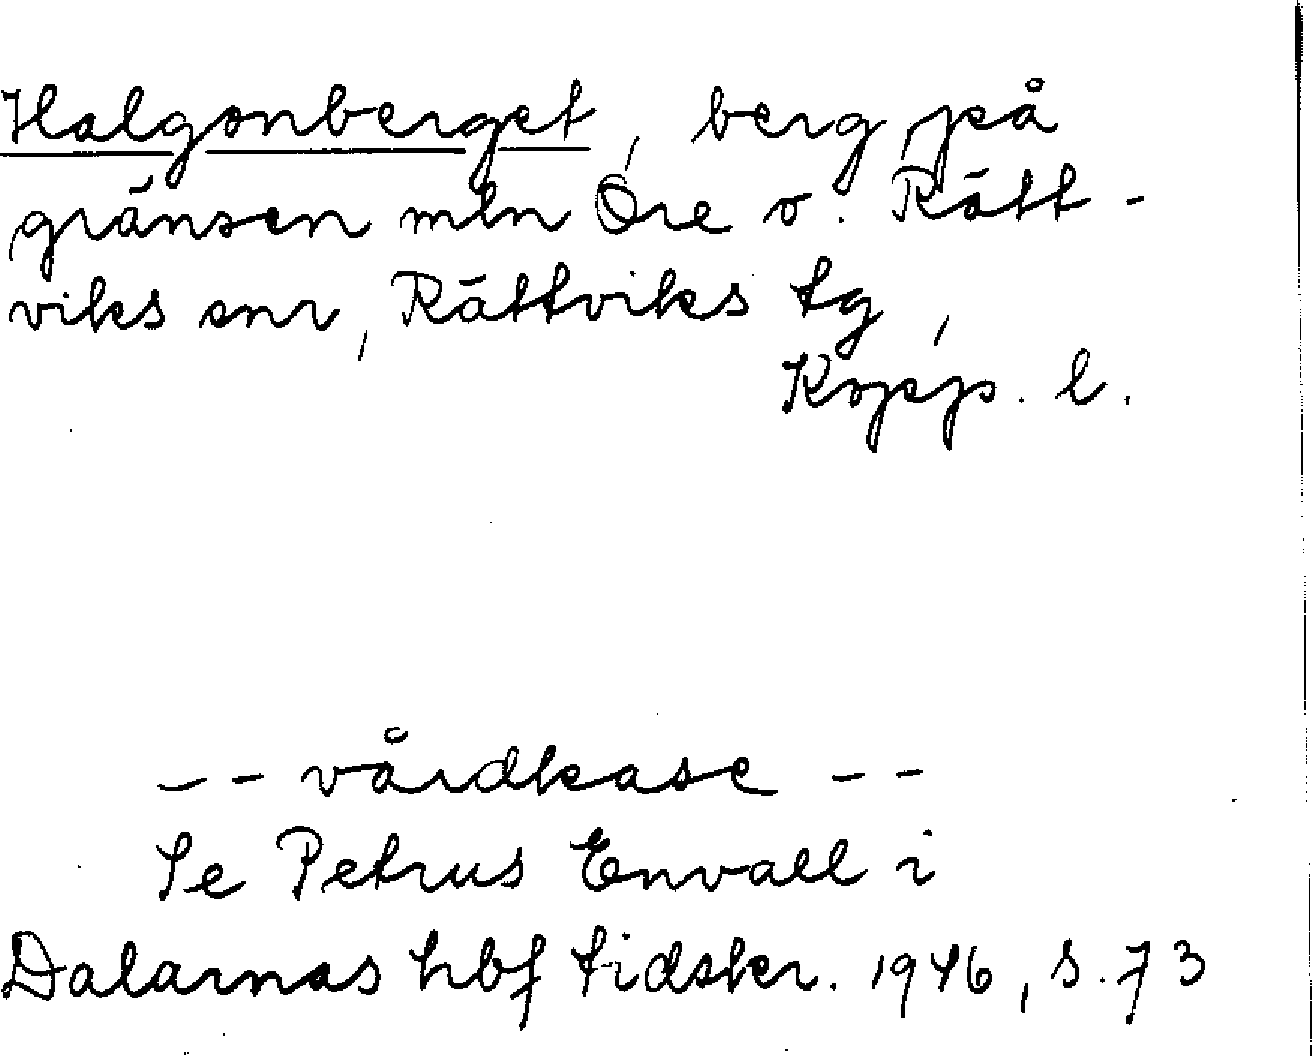 Halgonberget, berg på
gränsen mln Ore o. Rätt-
viks snr, Rättviks tg,
Kopp. l.
-- vårdkase --
Se Petrus Envall i
Dalarnas hbf tidskr. 1946, s. 73